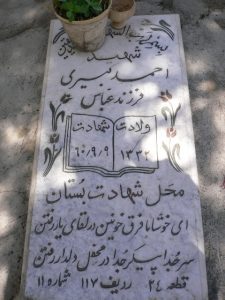 شهید
احمد نیری
فرزند عباس
ولادت شهادت
۱۳۳۲ ۶۰/۹/۹
محل شهادت بستان
ای خوشا با فرق خونین در لقای یار رفتن
سر جدا پیکر جدا در محفل دلدار رفتن
قطعه ۲۴ ردیف ۱۱۷ شماره ۱۱